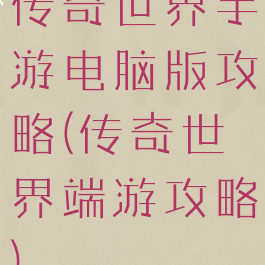 传奇世界手
游电脑版攻
略(传奇世
界端游攻略
)